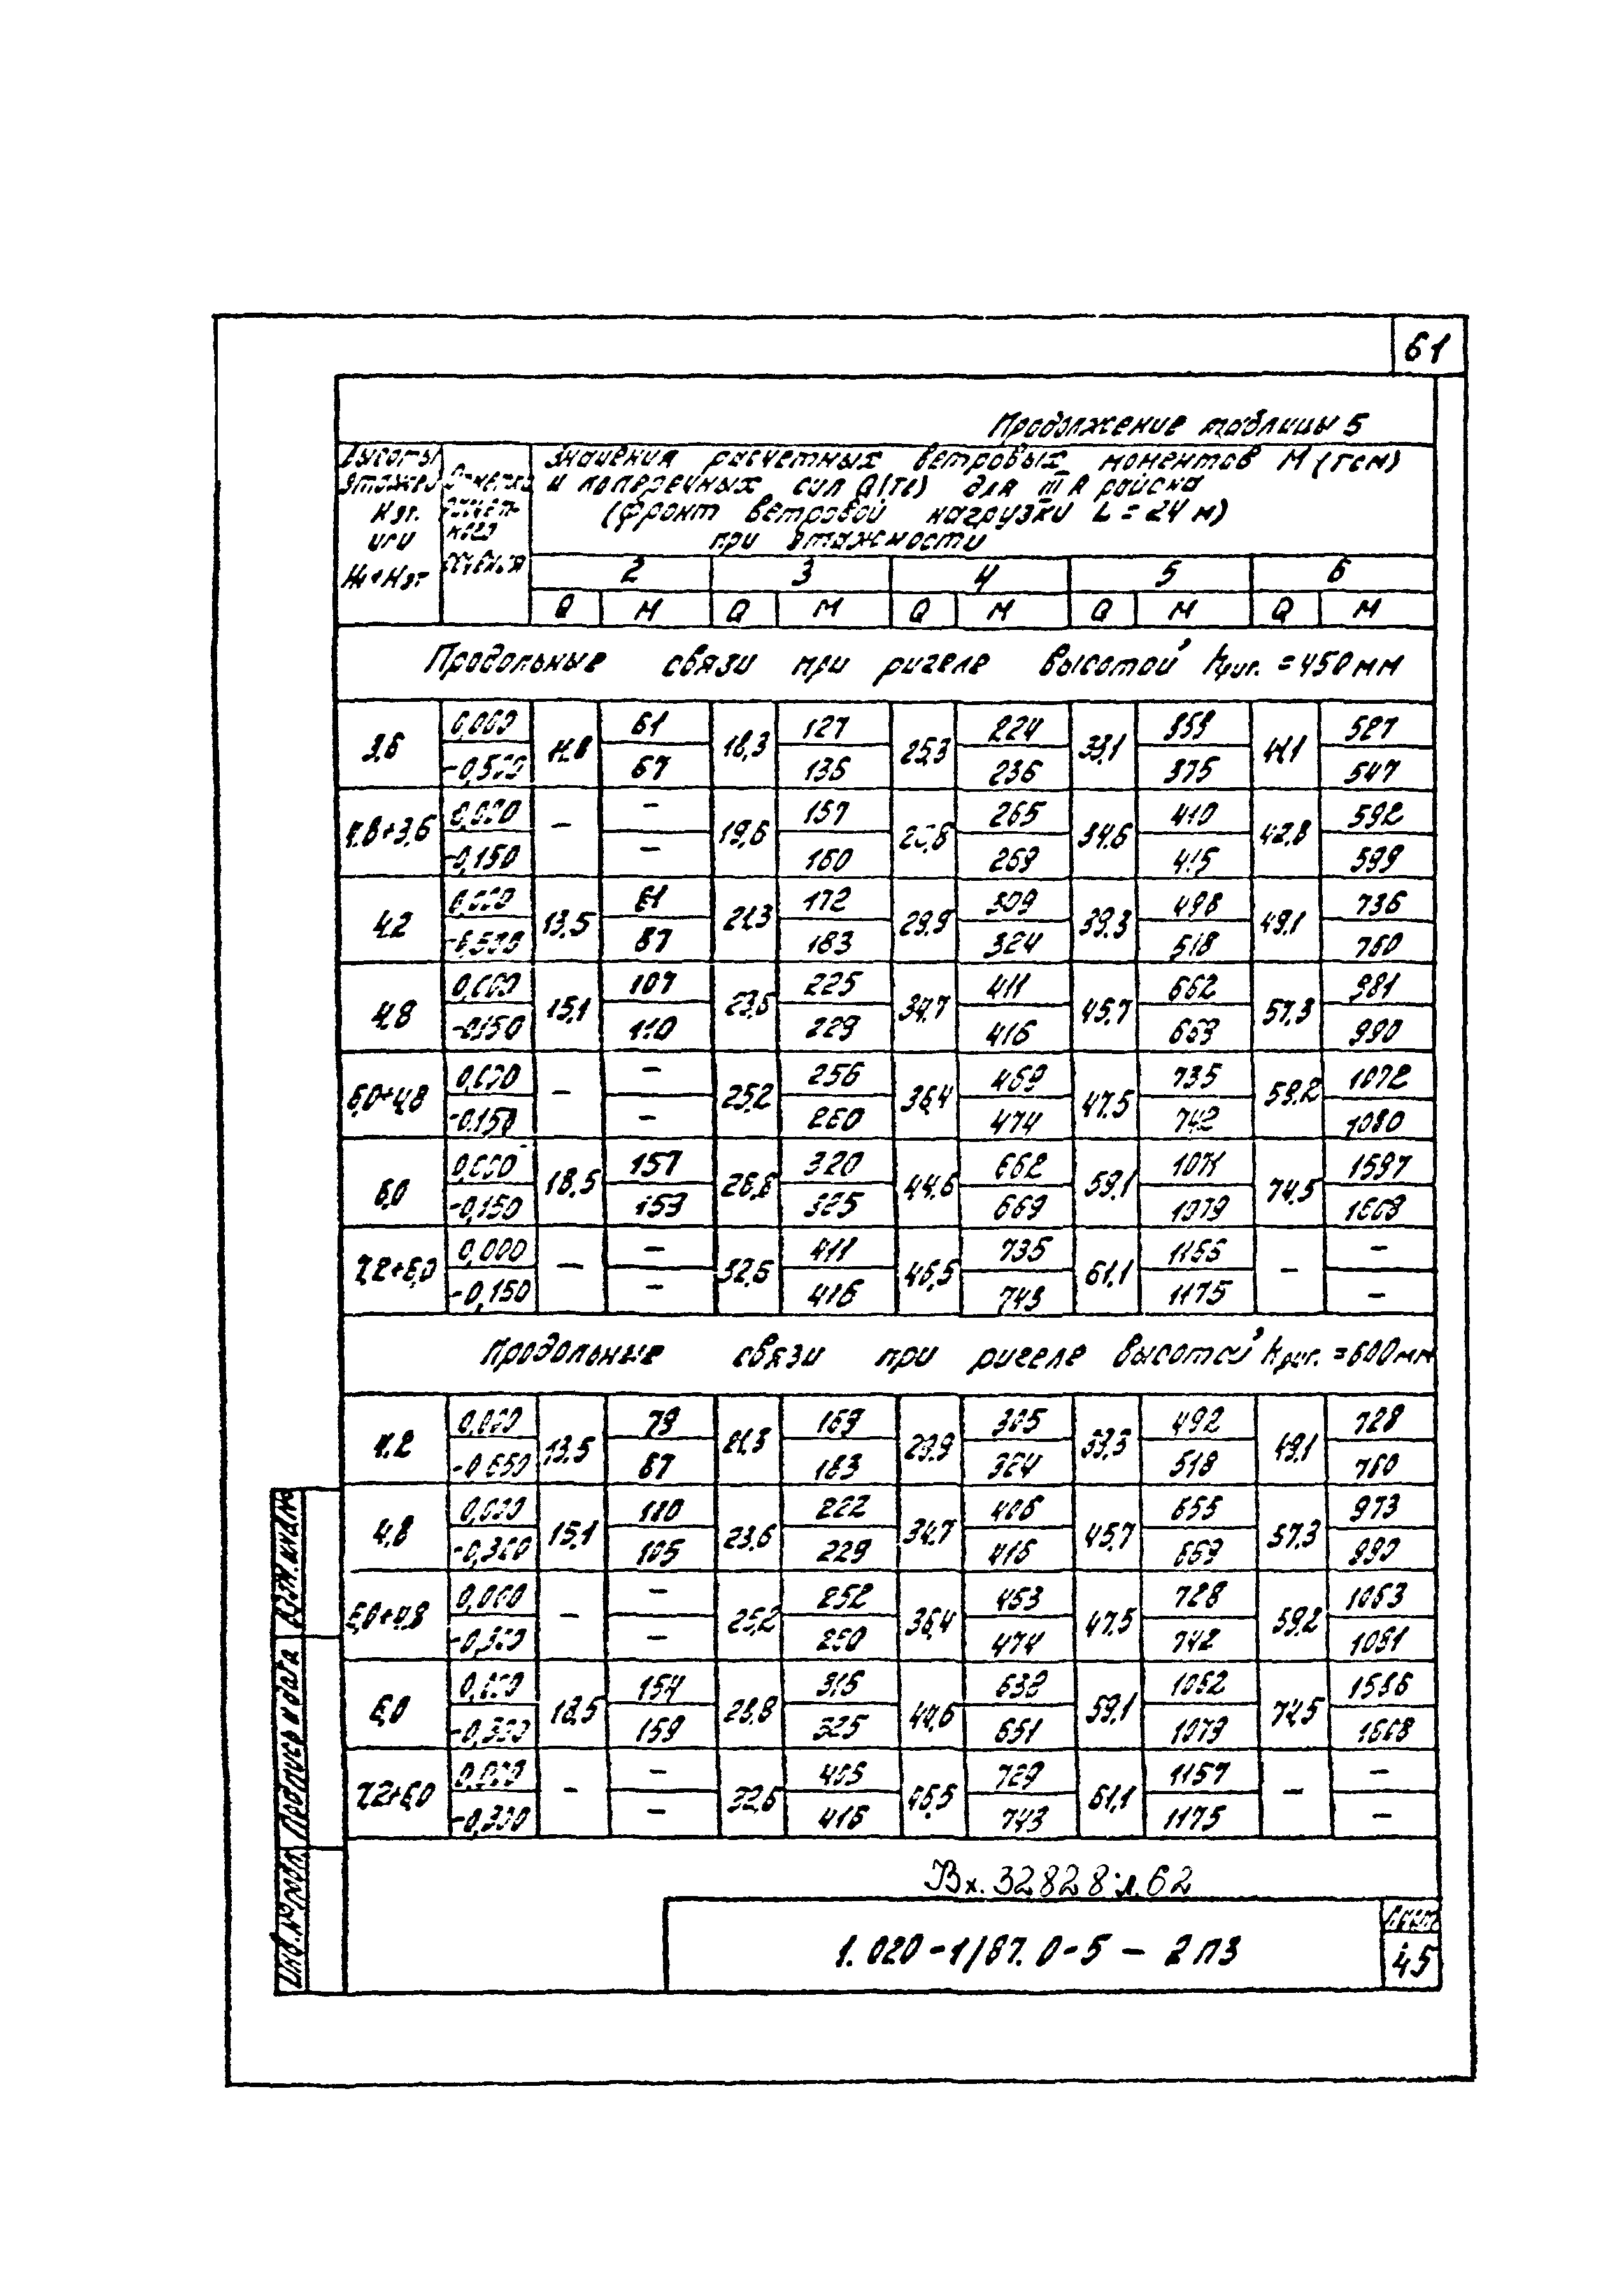 61
Продолжение таблицы 5
Высоты этажей Hэт. или H1+Hэт
Отметка расчетного сечения
Значения расчетных ветровых моментов М (тсм)
и поперечных сил Q(тс) для III А района
(фронт ветровой нагрузки L = 24 м)
при этажности
2 3 4 5 6
Q М Q М Q М Q М Q М
Продольные связи при ригеле высотой hриг. = 450 мм
3,6 0,000 11,8 61 18,3 127 25,3 224 33,1 359 41,1 527
-0,500 67 135 236 375 547
4,8+3,6 0,000 – – 19,6 157 265 34,6 410 42,8 592
-0,150 – 160 269 415 599
4,2 0,000 13,5 81 21,3 172 29,9 309 39,3 498 49,1 736
-0,500 87 183 324 518 760
4,8 0,000 15,1 107 23,6 225 34,7 411 45,7 662 57,3 981
-0,150 110 229 416 669 990
6,0+4,8 0,000 – – 25,2 256 36,4 469 47,5 735 59,2 1072
-0,150 – 260 474 742 1080
6,0 0,000 18,5 157 28,8 320 44,6 662 59,1 1071 74,5 1597
-0,150 159 325 669 1079 1608
7,2+6,0 0,000 – – 32,6 411 46,5 735 61,1 1166 – –
-0,150 – 416 743 1175 –
Продольные связи при ригеле высотой hриг. = 600 мм
4,2 0,000 13,5 79 21,3 169 29,9 305 39,3 492 49,1 728
-0,650 87 183 324 518 760
4,8 0,000 15,1 110 23,6 222 34,7 406 45,7 655 57,3 973
-0,300 105 229 416 669 990
6,0+4,8 0,000 – – 25,2 252 36,4 463 47,5 728 59,2 1063
-0,300 – 260 474 742 1081
6,0 0,000 18,5 154 28,8 315 44,6 638 59,1 1062 74,5 1586
-0,300 159 325 651 1079 1608
7,2+6,0 0,000 – – 32,6 405 46,5 729 61,1 1157 – –
-0,300 – 416 743 1175 –
Вх. 32828 л. 62
1. 020-1/87. 0-5 – 2 ПЗ
Лист
45
Инв. № подл. Подпись и дата Взам. инв. №